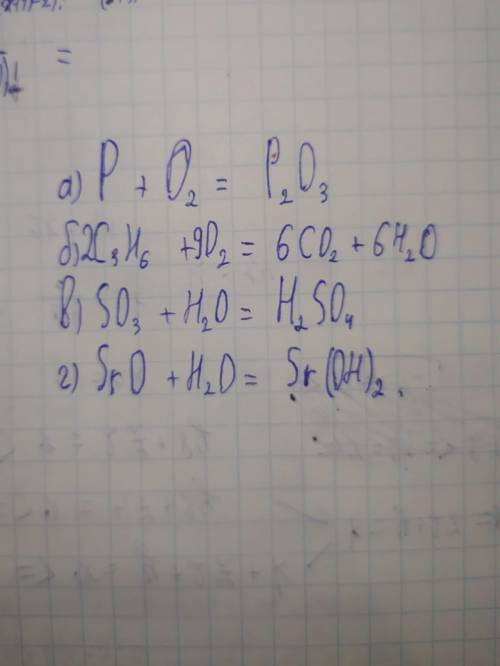 =
а) P + O₂ = P₂O₃
б) 2C₃H₆ + 9O₂ = 6CO₂ + 6H₂O
в) SO₃ + H₂O = H₂SO₄
г) SrO + H₂O = Sr(OH)₂.